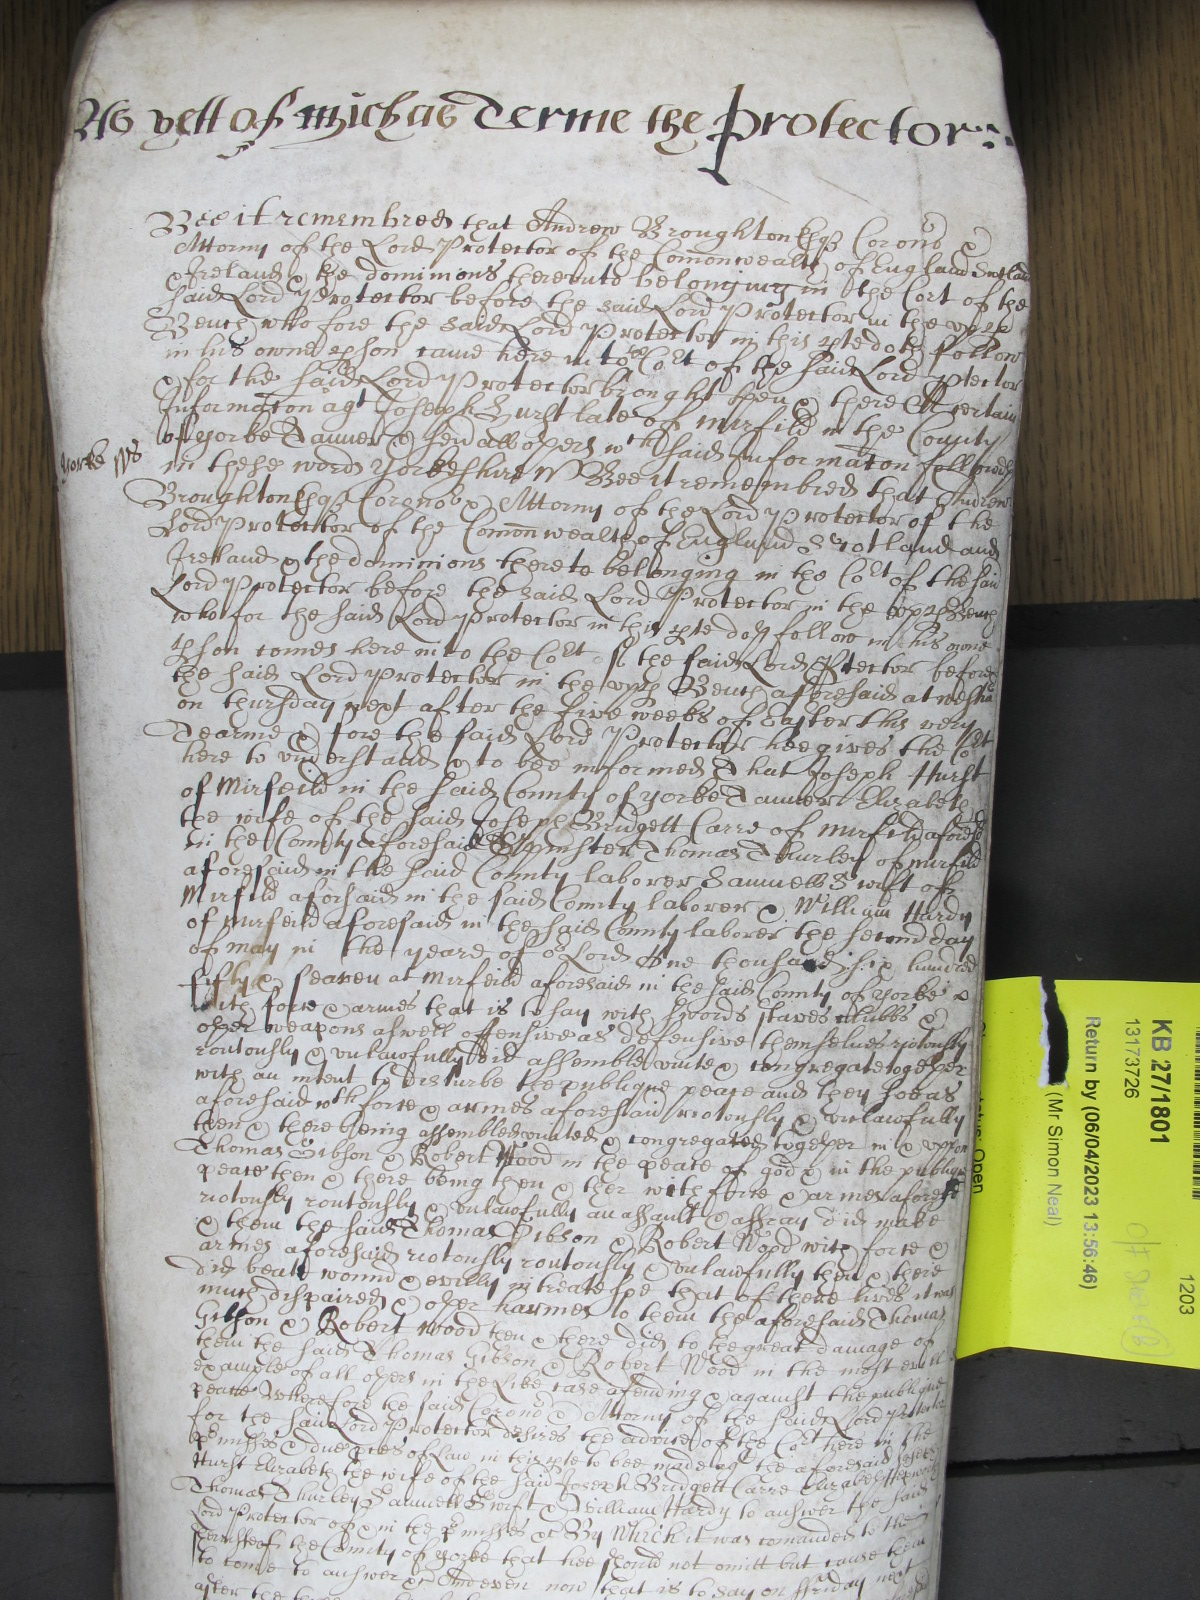 As yett of Michas Terme the Protector
Bee it remembred that Andrew Broughton Esqr Corono &
Attorny of the Lord Protector of the Comonwealth of England Scotland
& Ireland & the dominions thereunto belonging in the Cort of the
said Lord Protector before the said Lord Protector in the upp
Bench who fore the said Lord Protector in this pte doth follow
in his owne pson came here into the Cort of the said Lord ptector
& for the said Lord Protector brought then & there A certain
Informaton agt Joseph Hurst late of Mirfeild in the County
of Yorke Tanner & sevall others wch said informaton followeth
Yorke ss
in these words Yorkeshire ss Bee it remembred that Andrew
Broughton Esqr Corono & Attorny of the Lord Protector of the
Lord Protector of the Comon wealth of England Scotland and
Ireland & the dominions thereto belonging in the Cort of the said
Lord Protector before the said Lord Protector in the upp Bench
who for the said Lord Protector in this pte doth follow in his owne
pson comes here into the Cort of the said Lord Ptector before
the said Lord Protector in the upp Bench aforesaid at Westm
on thursday next after the five weeks of Easter this very
Tearme & fore the said Lord Protector hee gives the Cort
here to understand & to bee informed That Joseph Hurst
of Mirfeild in the said County of Yorke Tanner Elizabeth
the wife of the said Joseph Bridgett Carre of Mirfeild aforesd
in the County aforesaid Spinster Thomas Thurley of Mirfeild
aforesaid in the said County laborer Samuell Swift of
Mirfeild aforsaid in the said County laborer & William Hardy
of Mirfeild aforesaid in the said County laborer the second day
of may in the yeare of or Lord One thousand six hundred
fifty & seaven at Mirfeild aforesaid in the said County of Yorke
with force & armes that is to say with swords staves clubbs &
other weapons aswell offensive as defensive themselves riotously
routously & unlawfully did assemble unite & congregate together
with an intent to disturbe the publique peace and they soe as
aforesaid wth force & armes aforesaid riotously & unlawfully
then & there being assembled united & congregated together in & uppon
Thomas Gibson & Robert Wood in the peace of god & in the publique
peace then & there being then & ther with force & armes aforesd
riotously routously & unlawfully an assault & affray did make
& them the said Thomas Gibson & Robert Wood with force &
armes aforesaid riotously routously & unlawfully then & there
did beate wound & evilly intreate soe that of there lives it was
much dispaired & other harmes to them the aforesaid Thomas
Gibson & Robert Wood then & there did to the great damage of
them the said Thomas Gibson & Robert Wood in the most evill
example of all others in the like case afending & against the publique
peace Wherefore the said Corono & Attorny of the said Lord Protector
for the said Lord Protector desires the advice of the Cort here in the
pmisses & due pces of Law in this pte to bee made agt the aforesaid Joseph
Hurst Elizabeth the wife of the said Joseph Bridgett Carre
Thomas Thurley Samuell Swift & William Hardy to answer the said
Lord Protector of & in the pmisses &c By Which it was comanded to the
Sherriffe of the County of Yorke that hee should not omitt but cause them
to come to answer &c And even now that is to say on ffriday next
after the
KB 27/1801
13173726
Return by (06/04/2023 13:56:46)
(Mr Simon Neal)
Open
1203